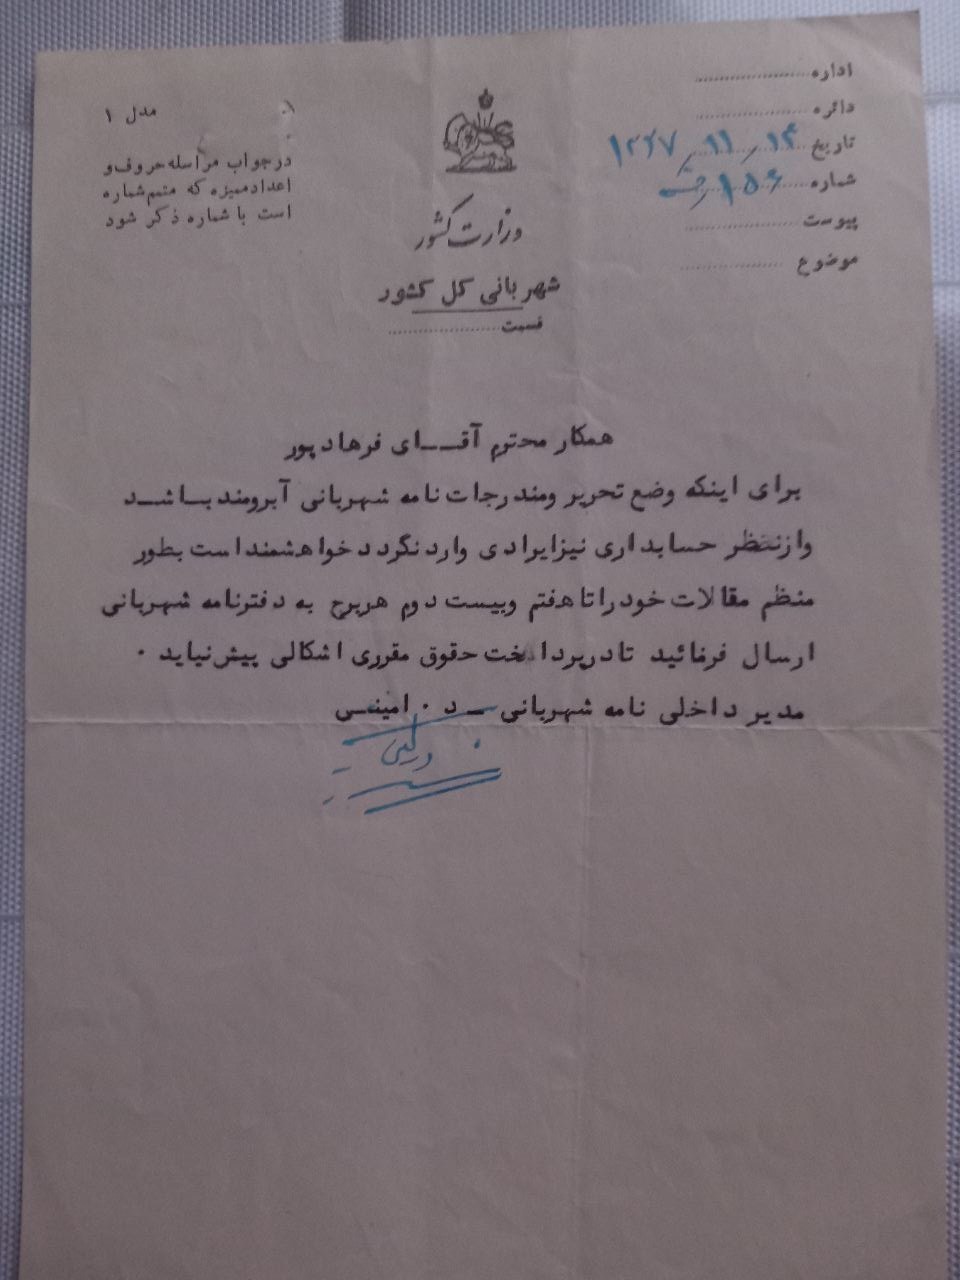 اداره
دائره
تاریخ ۱۴ / ۱۱ / ۱۳۲۷
شماره ۱۵۶
پیوست
موضوع
مدل ۱
درجواب مراسله حروف و
اعداد ممیزه که متمم شماره
است با شماره ذکر شود
وزارت کشور
شهربانی کل کشور
قسمت
همکار محترم آقــای فرهادپور
برای اینکه وضع تحریر ومندرجات نامه شهربانی آبرومند بـاشـد
وازنتظر حسابداری نیزایرادی واردنگردد خواهشمنداست بطور
منظم مقالات خودراتاهفتم وبیست دوم هربرج به دفترنامه شهربانی
ارسال فرمائید تادرپرداخت حقوق مقرری اشکالی پیش نیاید ۰
مدیر داخلی نامه شهربانی ــ د ۰ امینـی